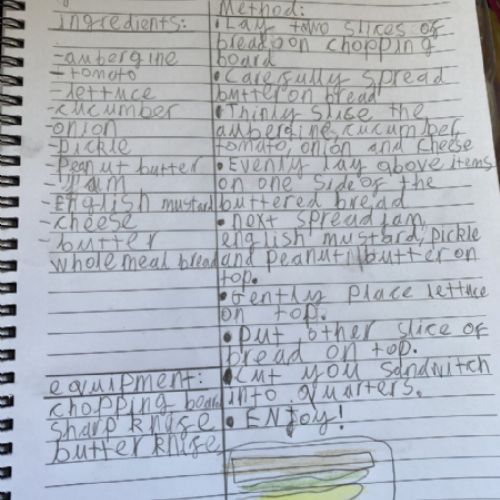 ingredients:
-aubergine
-tomato
-lettuce
-cucumber
-onion
-pickle
Peanut butter
-jam
-English mustard
-cheese
-butter
wholemeal bread
equipment:
chopping board
sharp knife
butter knife
Method:
• Lay two slices of
bread on chopping
board
• Carefully spread
butter on bread
• Thinly slise the
aubergine, cucumber,
tomato, onion and cheese
• Evenly lay above items
on one side of the
buttered bread
• next spread jam,
english mustard, pickle
and peanut butter on
top.
• Gently place lettuce
on top.
• Put other slice of
bread on top.
• Cut you sandwitch
into quarters.
• ENJoy!